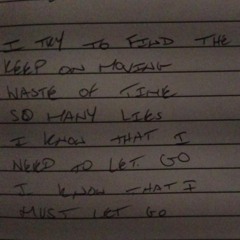 I TRY TO FIND THE
KEEP ON MOVING
WASTE OF TIME
SO MANY LIES
I KNOW THAT I
NEED TO LET GO
I KNOW THAT I
MUST LET GO